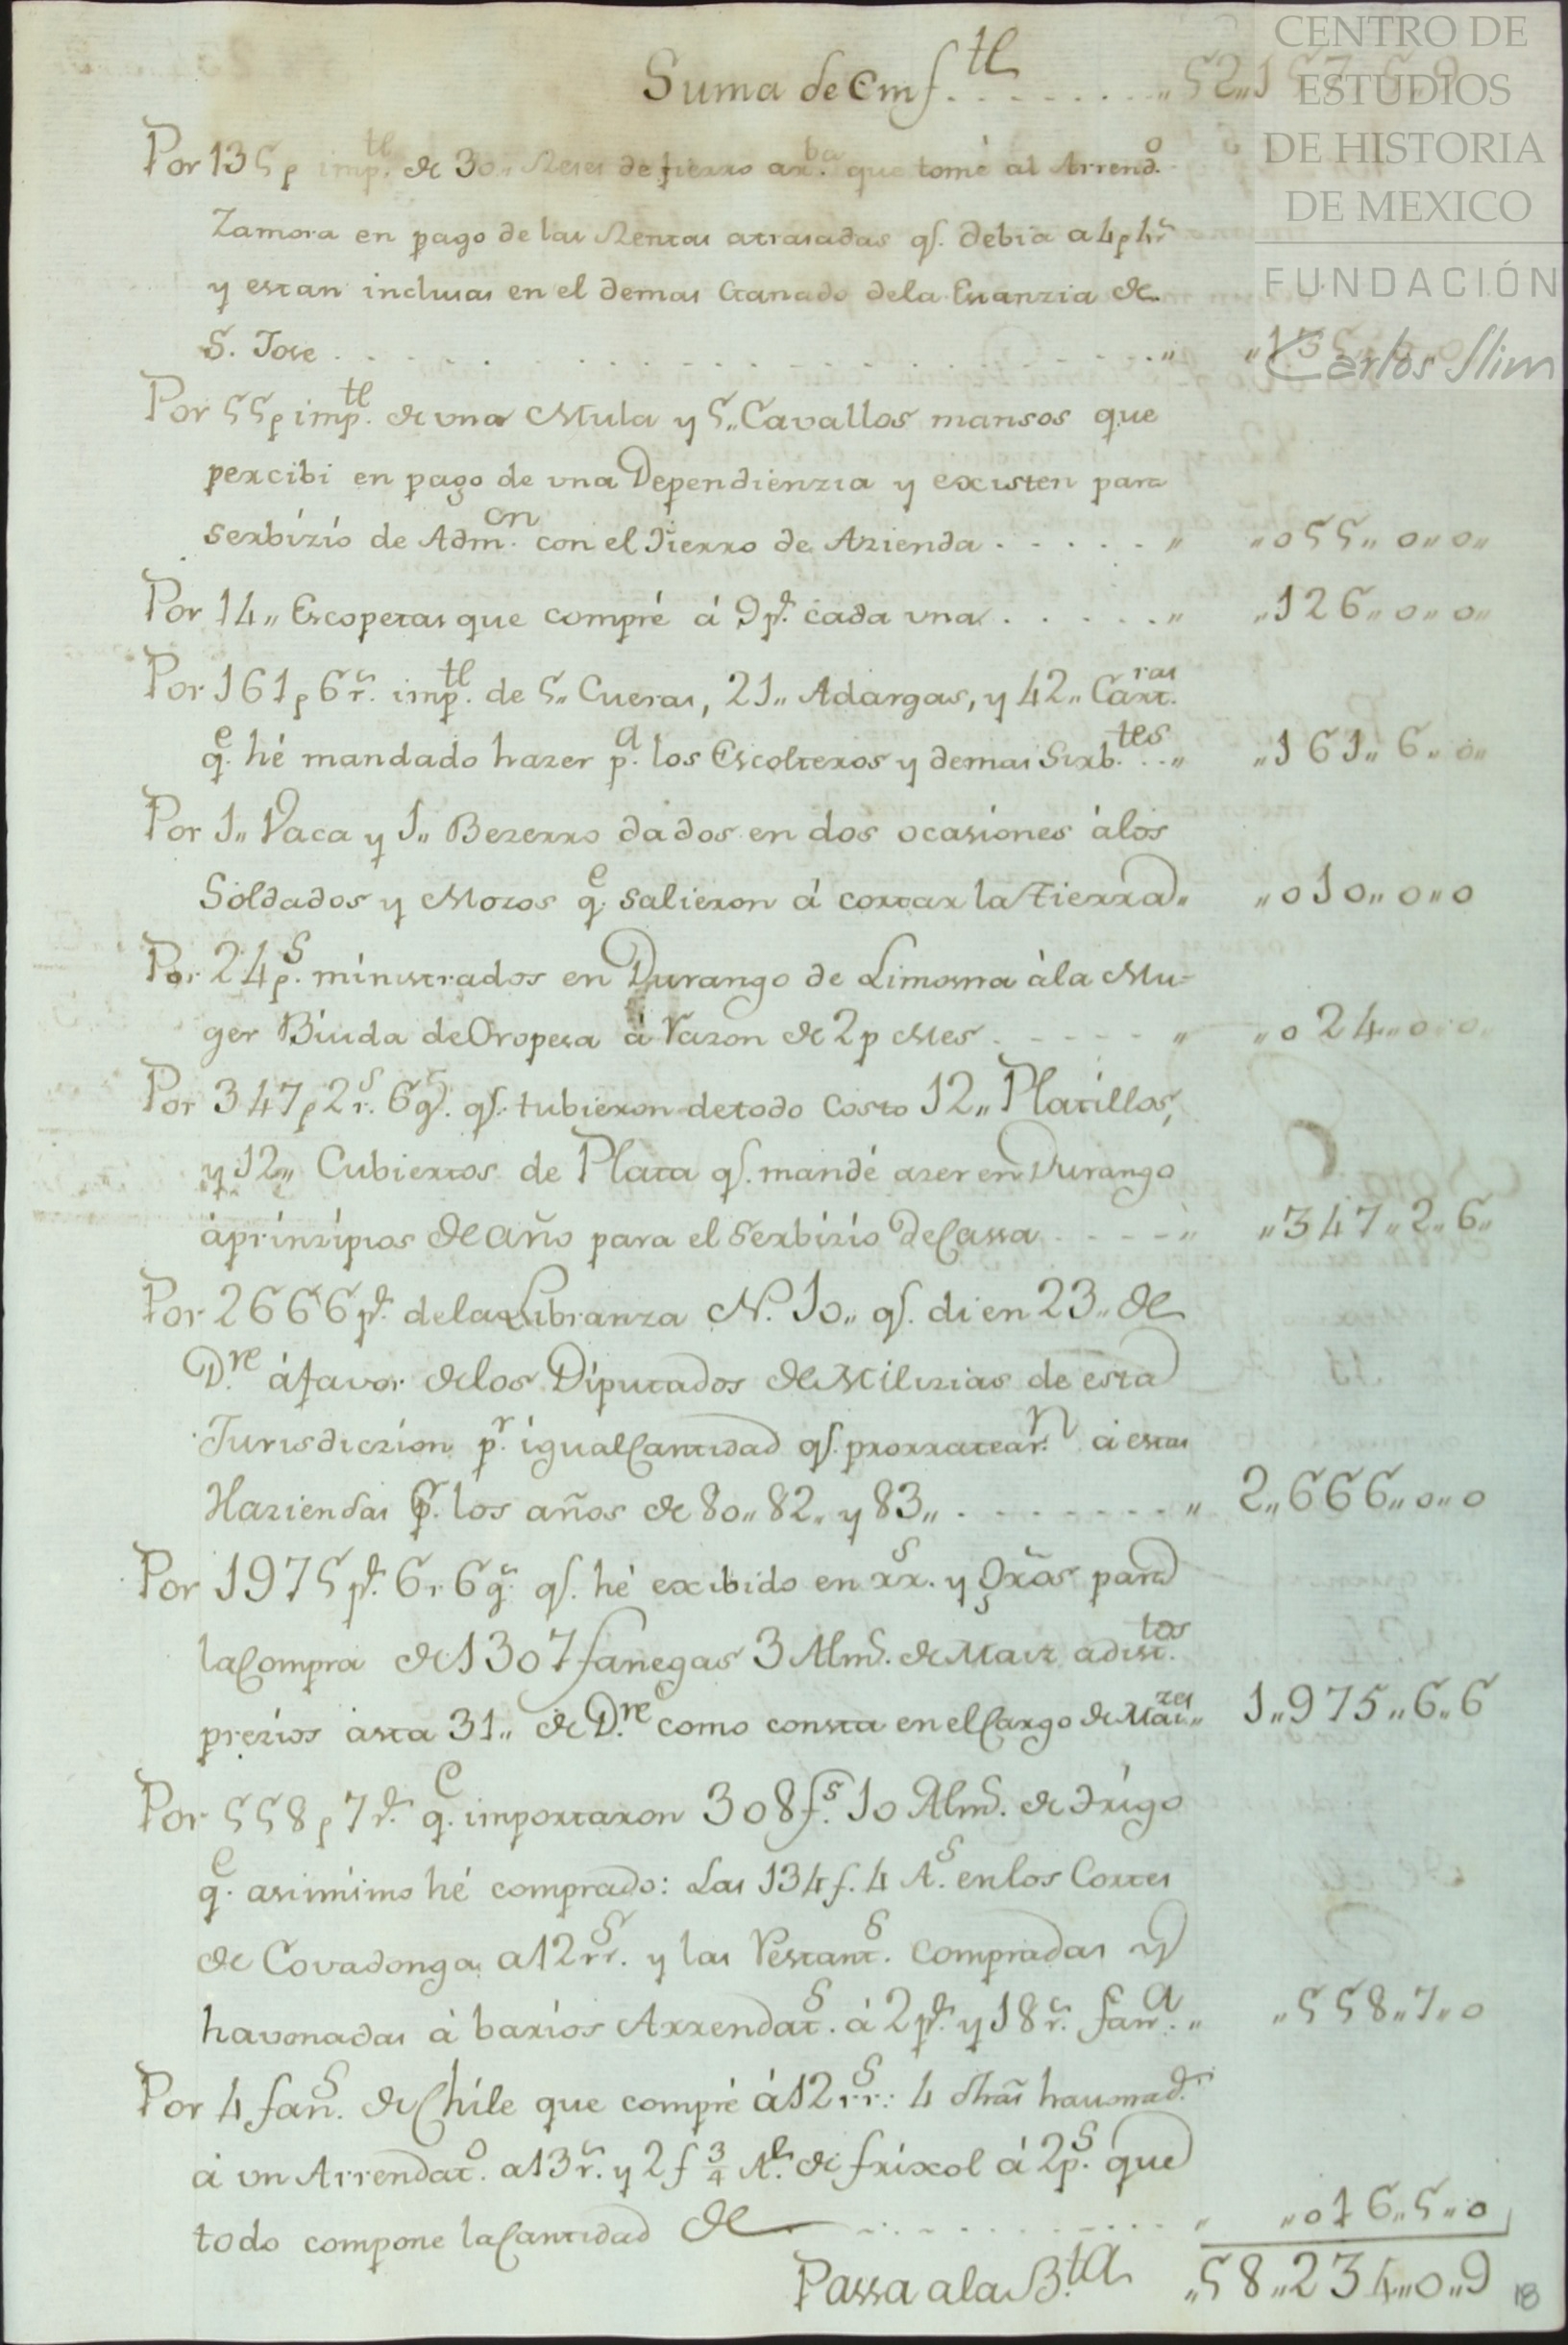 Suma de Emf.te . . . . . . . . „ 52„157„
Por 135 p imp.te de 30„ Reses de fierro ar.ba que tomé al Arrend.o
Zamora en pago de las Rentas atrasadas q.e debia a 4 p 4 r.s
y estan inclusas en el demas Ganado dela Estanzia de
S. Jose . . . . . . . . . . „ „135„
Por 55 p imp.te de una Mula y 5„ Cavallos mansos que
percibi en pago de una Dependienzia y existen para
serbizio de Adm.on con el Fierro de Azienda . . . . . „ „055„0„0„
Por 14„ Escopetas que compré á 9 p.s cada una . . . . . „ „126„0„0„
Por 161 p 6 r.s imp.te de 5„ Cueras, 21„ Adargas, y 42„ Cart.ras
q.e hé mandado hazer p.a los Escolteros y demas Sirb.tes . . „ „161„6„0„
Por 1„ Vaca y 1„ Bezerro dados en dos ocasiones álos
Soldados y Mozos q.e salieron á cortar la tierra„ „010„0„0
Por 24 p.s ministrados en Durango de Limosna ála Mu-
ger Biuda de Oropesa á Razon de 2 p Mes . . . . . „ „024„0„0„
Por 347 p 2 r.s 6 g.s q.e tubieron de todo costo 12„ Platillos,
y 12„ Cubiertos de Plata q.e mandé azer en Durango
áprinzipios de año para el Serbizio De Cassa . . . . „ „347„2„6„
Por 2666 p.s dela Libranza N. 10„ q.e di en 23„ de
D.re áfavor delos Diputados de Milizias de esta
Jurisdiczion p.r igual Cantidad q.e prorratear.n á estas
Haziendas p.r los años de 80„ 82„ y 83„ . . . . . . . „ 2„666„0„0
Por 1975 p.s 6 r 6 g.s q.e hé exibido en rr.s y Oras para
la Compra de 1307 fanegas 3 Alm.s de Maiz a dist.tos
prezios asta 31„ de D.re como consta en el Cargo de Mai.zes„ 1„975„6„6
Por 558 p 7 r.s q.e importaron 308 f.s 10 Alm.s de Trigo
q.e asimimo hé comprado: Las 134 f. 4 A.s en los Cortes
de Covadonga a 12 rr.s y las Restant.s compradas y
havonadas á barios Arrendat.s á 2 p.s y 18 r.s fan.a „ „558„7„0
Por 4 fan.s de Chile que compré á 12 rr.s: 4 dhas havonad.s
á un Arrendat.o a 13 r.s y 2 f 3/4 A.l de frixol á 2 p.s que
todo compone la Cantidad de . . . . . . . . „ „016„5„0
Passa a la B.ta „58„234„0„9
18
CENTRO DE
ESTUDIOS
DE HISTORIA
DE MEXICO
FUNDACIÓN
Carlos Slim